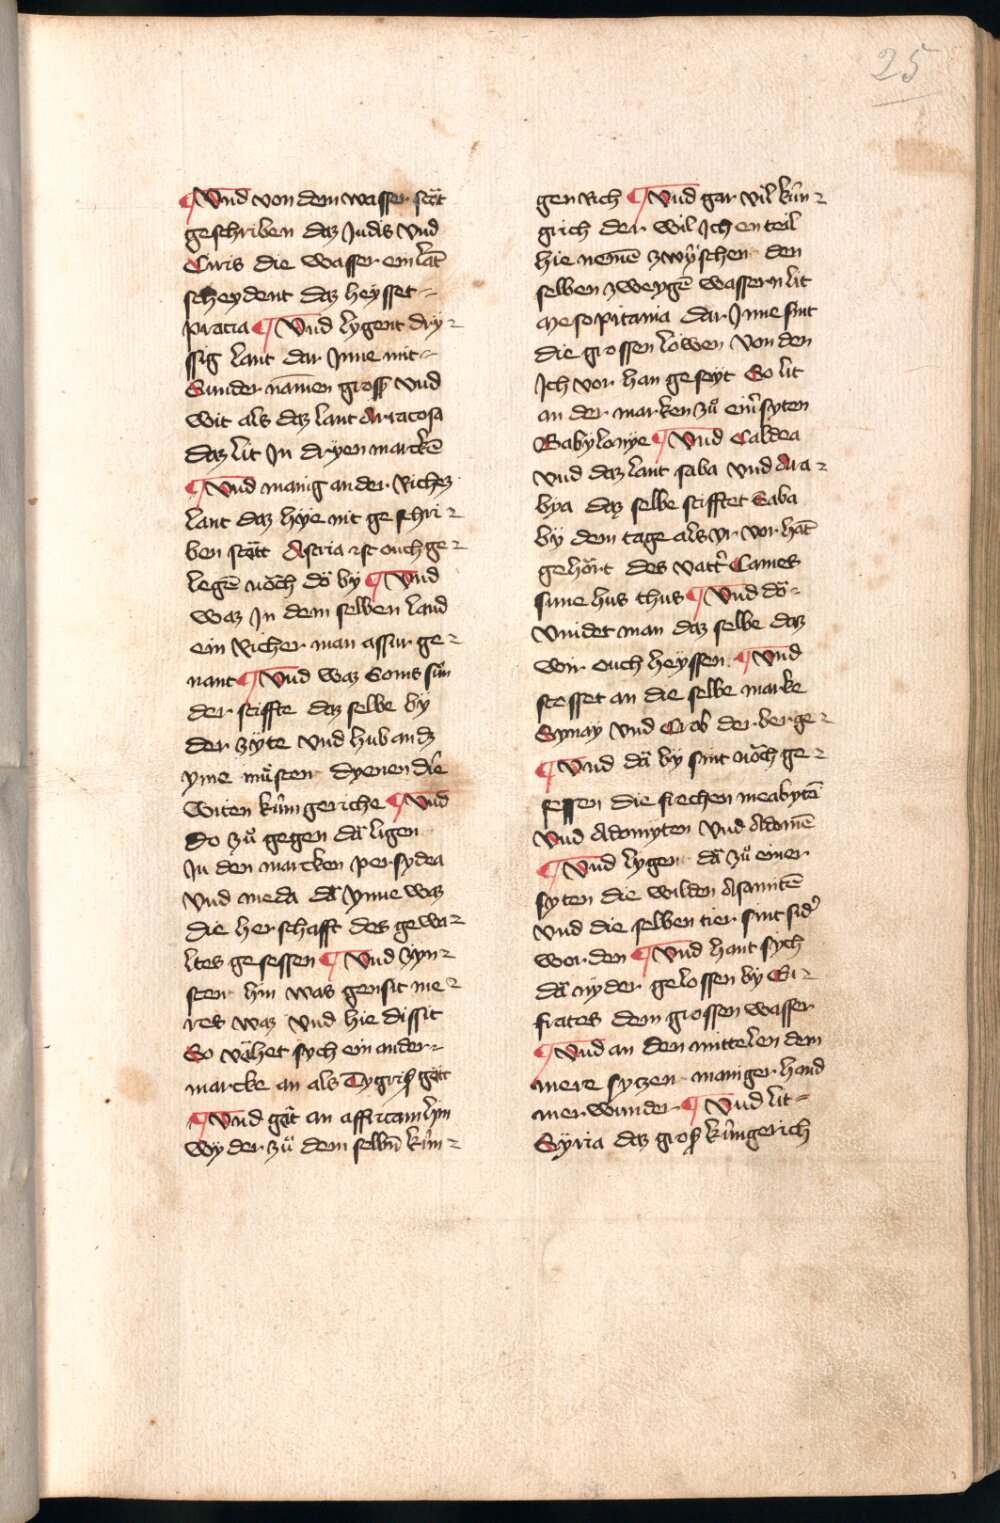 25
¶ Vnd von dem wasser stät
geschriben daz Judis vnd
Curis die wasser ein lāt
scheydent daz heysset
pratia ¶ Vnd lygent dry-
ssig lant dar Jnne mit
Sunder namen groß vnd
wit als daz lant Arratosa
daz lit Jn dryen marckē
¶ Vnd manig ander Richez
lant daz hÿe nit geschri-
ben stätt Astria ist ouch ge-
legē nöch dö bÿ ¶ Vnd
waz Jn dem selben land
ein Richer man assur ge-
nant ¶ Vnd waz Soms sün
der stiffte daz selbe by
der zÿte vnd hub an dz
yme müsten dyenen die
witen küngeriche ¶ Vnd
do zů gegen dä ligen
Jn den marcken persydea
vnd meda dä ynne waz
die herschafft des gewa-
ltes gesessen ¶ Vnd zyn-
sten hin was gensit me-
res waz vnd hie dissit
So vähet sych ein ander
marcke an als Tygris gätt
¶ Vnd gät an affricam hyn
wyder zů dem selbn̄ kün-
gen Rich ¶ Vnd gar vil kün-
grich der wil Jch en teil
hie nēmē zwÿschen den
selben zweygē wassern lit
Mesopitania dar Jnne sint
die grossen löwen von den
Jch vor han geseyt So lit
an der marken zů eim̄ syten
Babylonÿe ¶ Vnd Caldea
vnd daz lant saba vnd Ara-
bya daz selbe stifftet Saba
bÿ dem tage als yr vor hāt
gehört des vatt̄ Cames
sune hus thus ¶ Vnd dö
vindet man daz selbe daz
wir ouch heÿssen ¶ Vnd
stosset an die selbe marke
Synay vnd Orob der berge
¶ Vnd dä by sint nöch ge-
sessen die frechen meabytē
vnd Adomyten vnd Adomē
¶ Vnd lygen dä zů einer
syten die wilden Asamitē
vnd die selben tier sint sid̄
worden ¶ Vnd hant sych
dä nyder gelossen bÿ Eu-
frates dem grossen wasser
¶ Vnd an den mittelen dem
mere syzen maniger hand
mer wunder ¶ Vnd lit
Sÿria daz groß küngerich